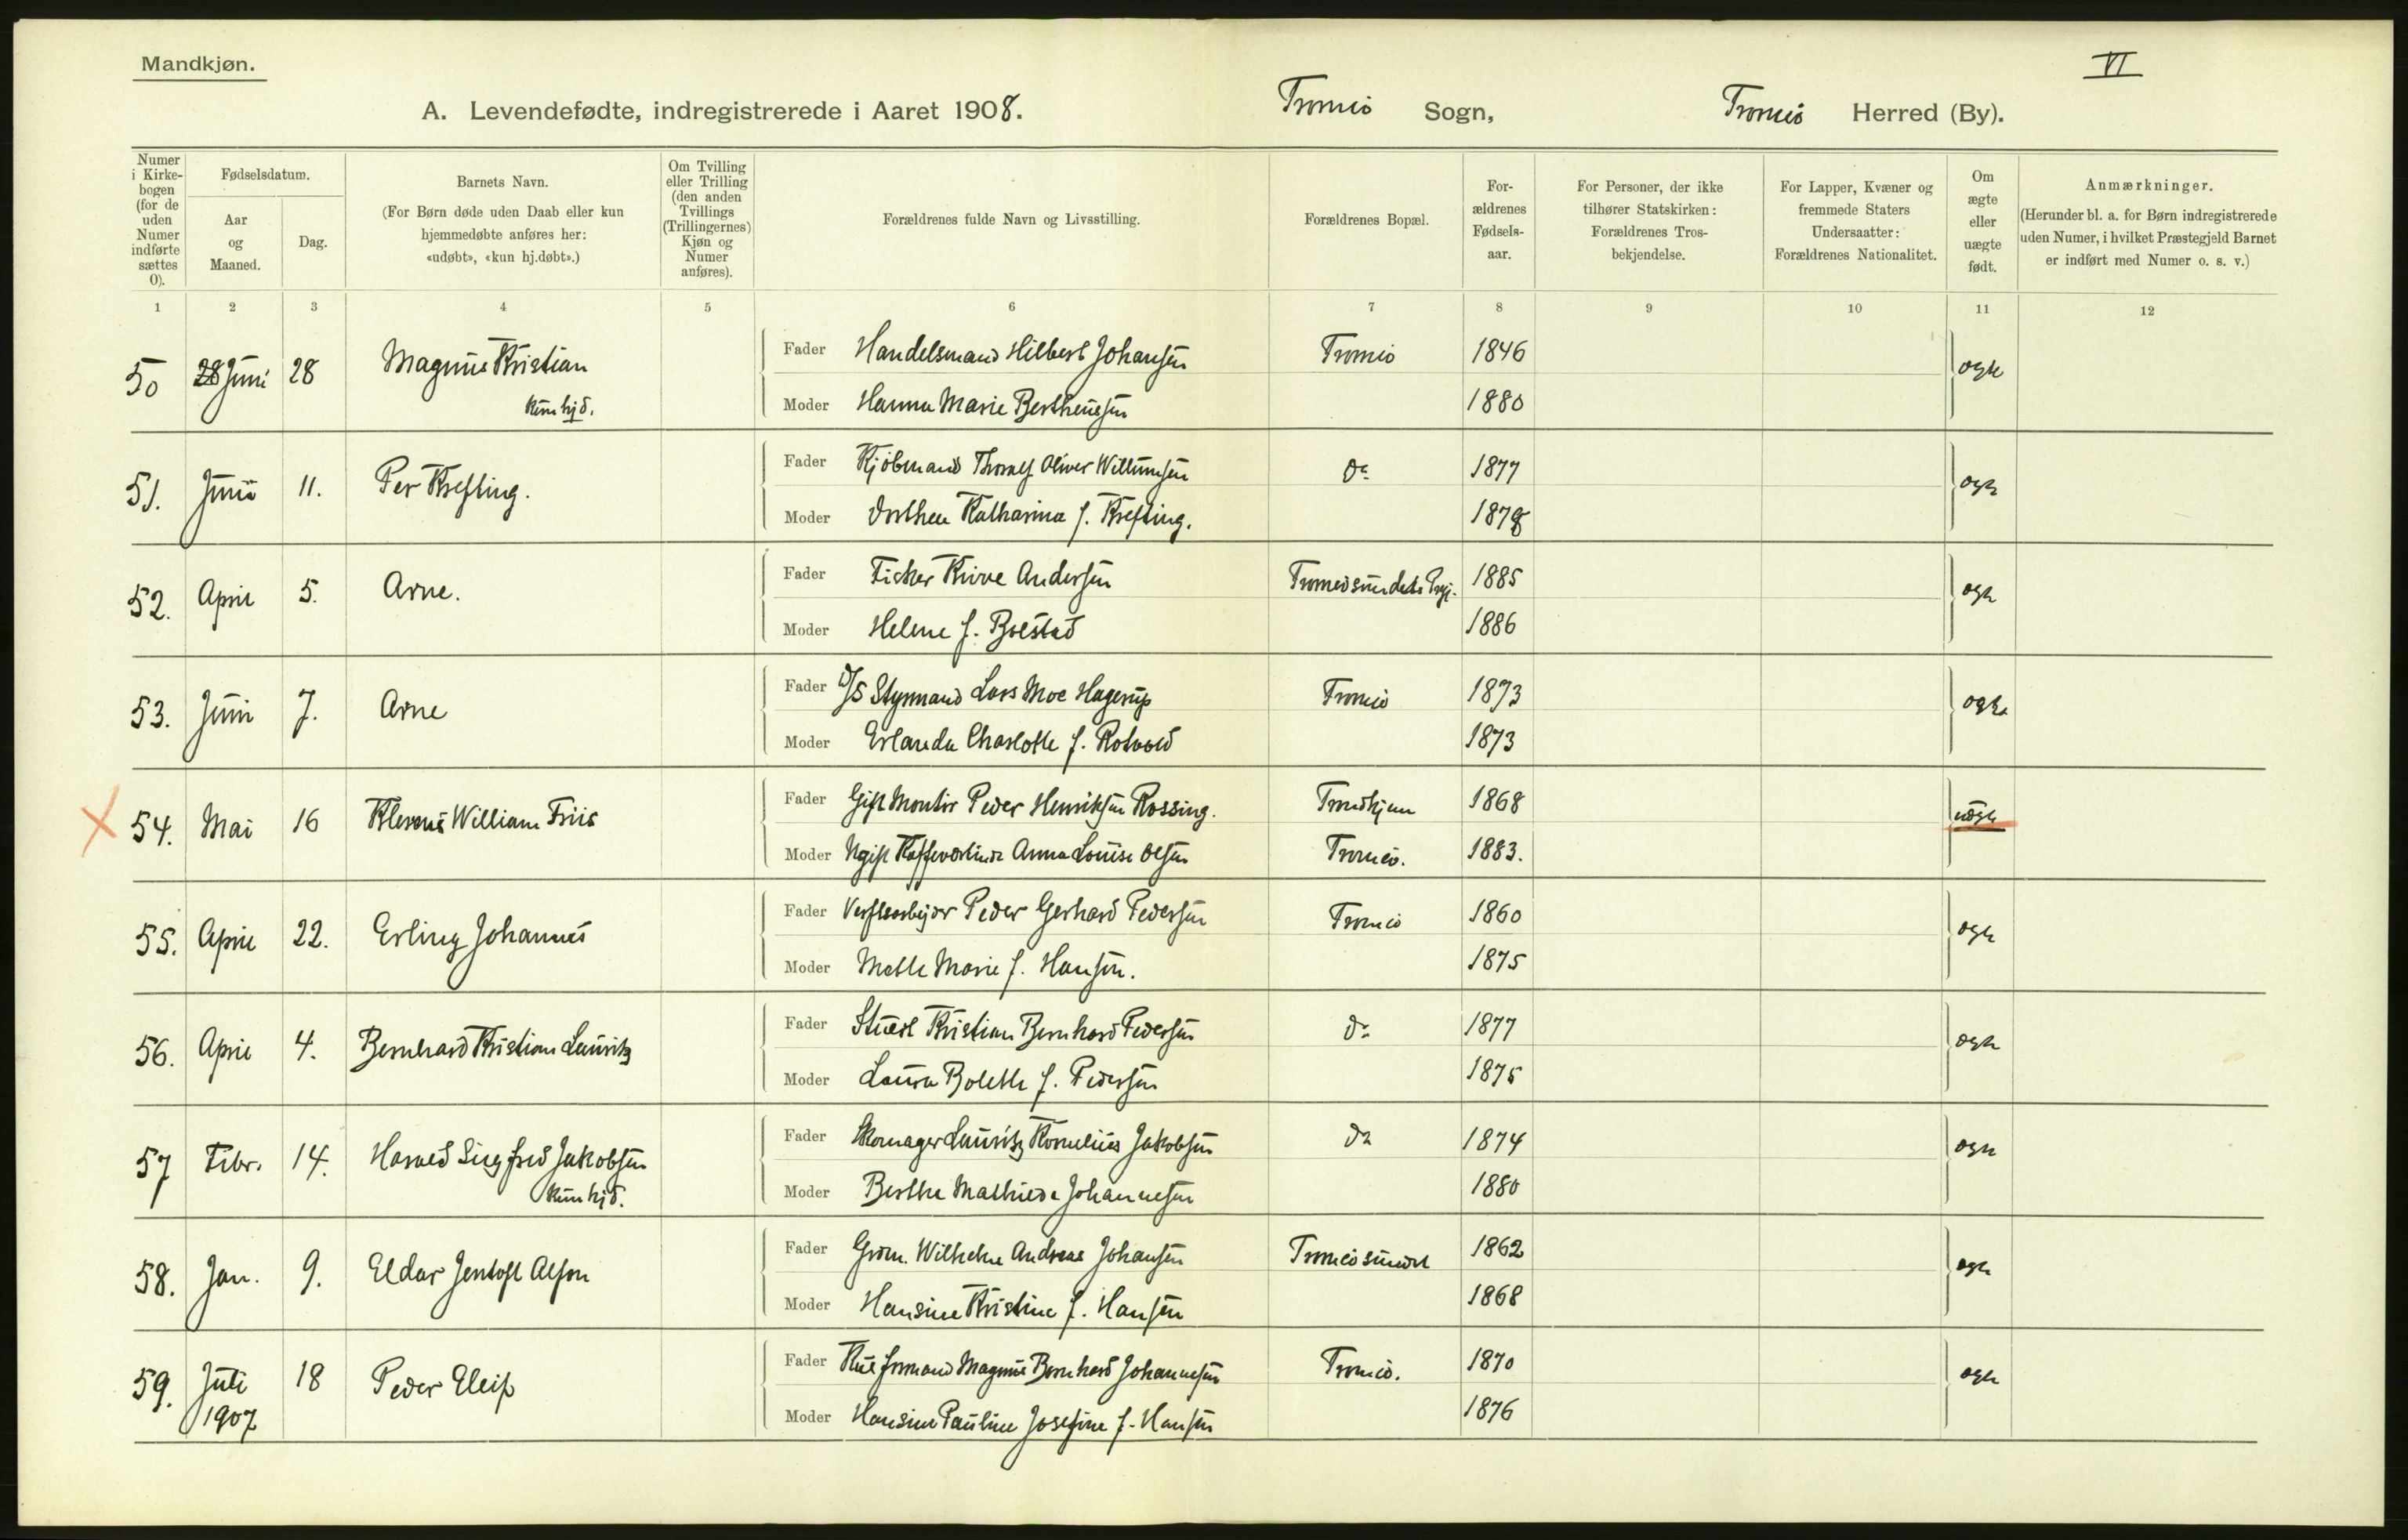 Mandkjøn.
VI
A. Levendefødte, indregistrerede i Aaret 1908. Tromsö Sogn, Tromsö Herred (By).
Numer i Kirkebogen (for de uden Numer indførte sættes 0).
Fødselsdatum.
Aar og Maaned.
Dag.
Barnets Navn.
(For Børn døde uden Daab eller kun hjemmedøbte anføres her: «udøbt», «kun hj.døbt».)
Om Tvilling eller Trilling (den anden Tvillings (Trillingernes) Kjøn og Numer anføres).
Forældrenes fulde Navn og Livsstilling.
Forældrenes Bopæl.
Forældrenes Fødselsaar.
For Personer, der ikke tilhører Statskirken: Forældrenes Trosbekjendelse.
For Lapper, Kvæner og fremmede Staters Undersaatter: Forældrenes Nationalitet.
Om ægte eller uægte født.
Anmærkninger.
(Herunder bl. a. for Børn indregistrerede uden Numer, i hvilket Præstegjeld Barnet er indført med Numer o. s. v.)
1 2 3 4 5 6 7 8 9 10 11 12
50 28 Juni 28 Magnus Kristian
Kun hjd.
Fader Handelsmand Hilbert Johansen Tromsö 1846 ægte
Moder Hanna Marie Bertheussen 1880
51. Juni 11. Per Krefting.
Fader Kjöbmand Thoralf Oliver Willumsen do 1877 ægte
Moder Dorthea Katharina f. Krefting. 1878
52. April 5. Arne.
Fader Fisker Andersen Tromsösundets Prgj. 1885 ægte
Moder Helene f. Bolstad 1886
53. Juni 7. Arne
Fader D/S Styrmand Lars Moe Hagerup Tromsö 1873 ægte
Moder Erlanda Charlotte f. Rotvold 1873
54. Mai 16 William Friis
Fader Gift Montör Peder Henriksen Rossing. Trondhjem 1868 uægte
Moder Ugift Kaffevertinde Anna Louise Olsen Tromsö. 1883.
55. April 22. Erling Johannes
Fader Verftsarbejder Peder Gerhard Pedersen Tromsö 1860 ægte
Moder Mette Marie f. Hansen. 1875
56. April 4. Bernhard Kristian Lauritz
Fader Stuert Kristian Bernhard Pedersen do 1877 ægte
Moder Laura Bolette f. Pedersen 1875
57 Febr. 14. Harald Sigfred Jakobsen
Kun hjd.
Fader Skomager Lauritz Kornelius Jakobsen do 1874 ægte
Moder Berthe Mathilde Johannesen 1880
58. Jan. 9. Eldar Jentoft Alfon
Fader Grdm. Wilhelm Andreas Johansen Tromsösundet 1862 ægte
Moder Hansine Kristine f. Hansen 1868
59. Juli 18 Peder Eleif
1907
Fader Kulformand Magnus Bernhard Johannesen Tromsö. 1870 ægte
Moder Hansine Pauline Josefine f. Hansen 1876